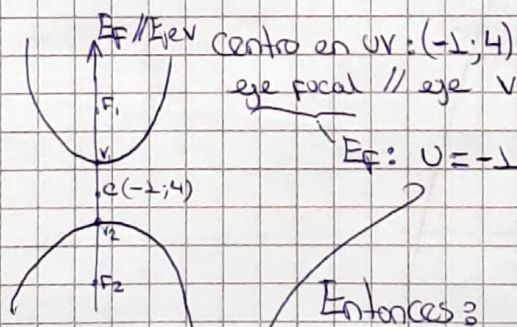 EF//Ejev
centro en uv: (-1; 4)
eje focal // eje v
F1
EF: U = -1
V1
C(-1; 4)
V2
F2
Entonces: